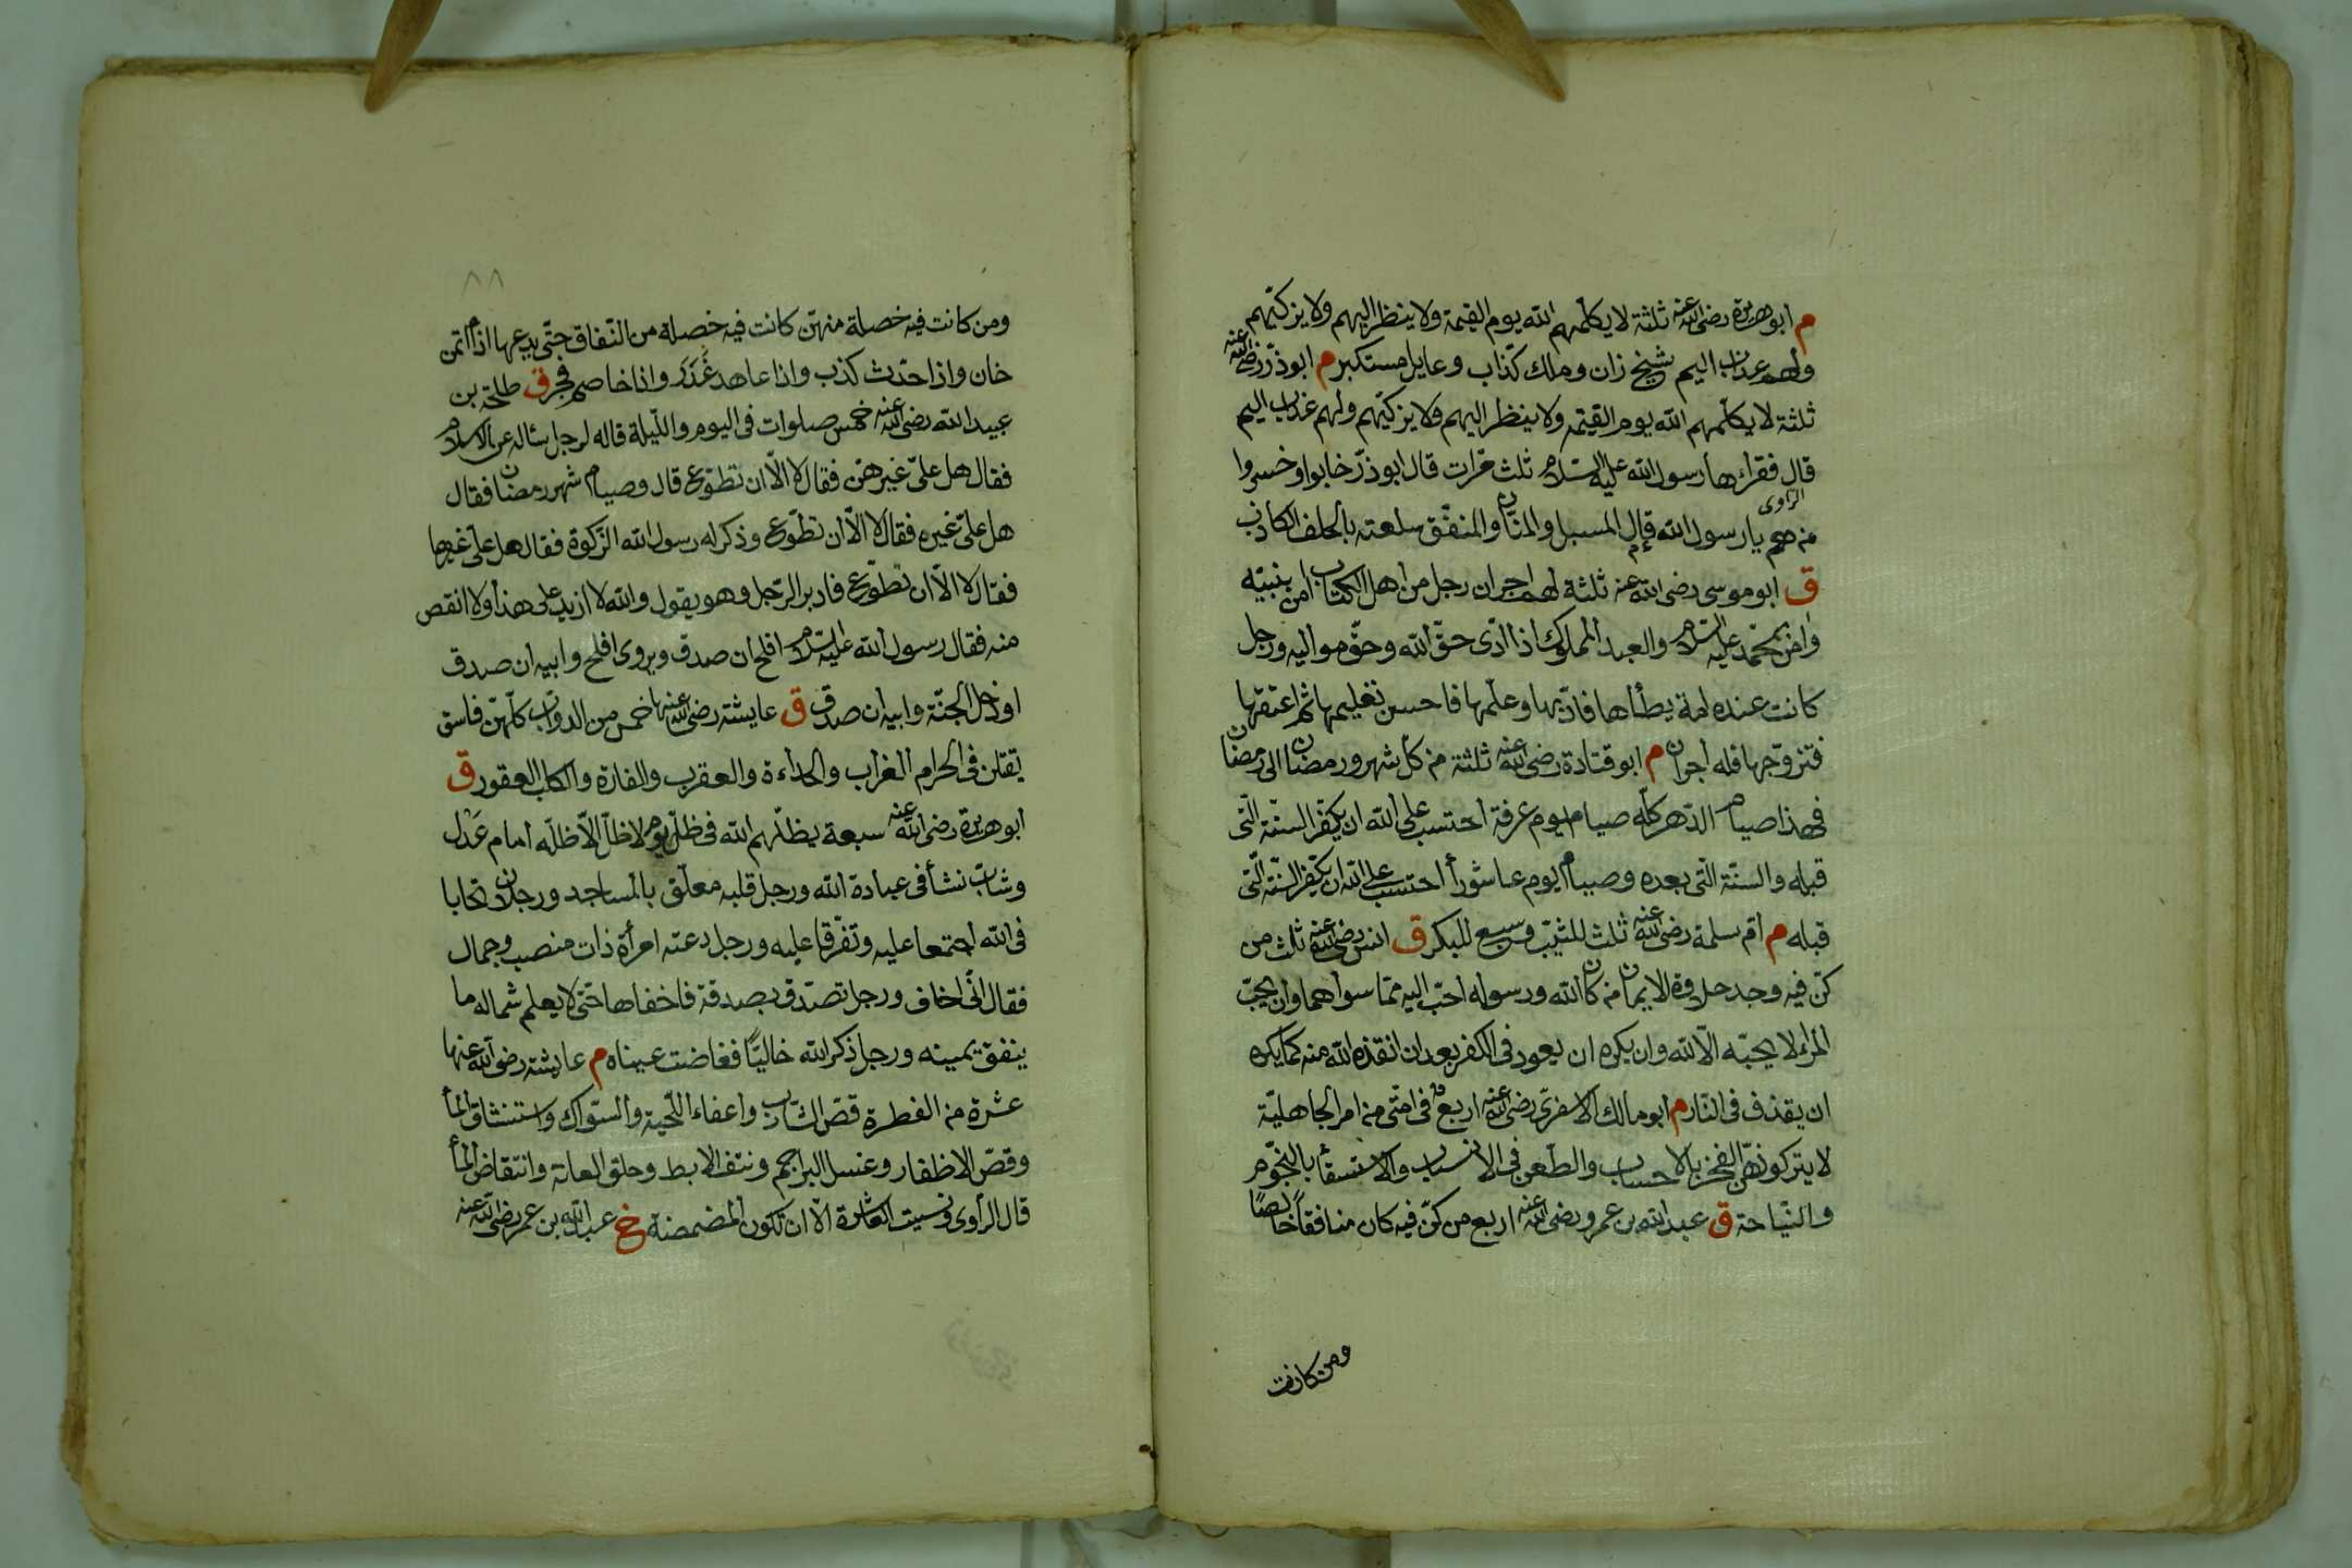 م ابو هريرة رضى الله عنه ثلثة لا يكلمهم الله يوم القيمة ولا ينظر اليهم ولا يزكيهم
ولهم عذاب اليم شيخ زان وملك كذّاب وعايل مستكبر م ابو ذرّ رضى الله عنه
ثلثة لا يكلّمهم الله يوم القيمة ولا ينظر اليهم ولا يزكيّهم ولهم عذاب اليم
قال فقرأها رسول الله عليه السلام ثلث مرّات قال ابو ذرّ خابوا وخسروا
الراوى
من هم يا رسول الله قال المسبل والمنّان والمنفّق سلعته بالحلف الكاذب
ق ابو موسى رضى الله عنه ثلثة لهم اجران رجل من اهل الكتاب آمن بنبيّه
وآمن بمحمّد عليه السلام والعبد المملوك اذا ادّى حقّ الله وحقّ مواليه ورجل
كانت عنده امة يطأها فادّبها وعلّمها فاحسن تعليمها ثم اعتقها
فتزوّجها فله اجران م ابو قتادة رضى الله عنه ثلثة من كلّ شهر ورمضان الى رمضان
فهذا صيام الدّهر كلّه صيام يوم عرفة احتسب على الله ان يكفّر السنّة الّتى
قبله والسنّة الّتى بعده وصيام يوم عاشورأ احتسب على الله ان يكفّر السنّة الّتى
قبله م امّ سلمة رضى الله عنه ثلث للثيّب وسبع للبكر ق انس رضى الله عنه ثلث من
كنّ فيه وجد حلاوة الايمان من كان الله ورسوله احبّ اليه ممّا سواهما وان يحبّ
المرء لا يحبّه الّا لله وان يكره ان يعود فى الكفر بعد ان انقذه الله منه كما يكره
ان يقذف فى النّار م ابو مالك الاشعرىّ رضى الله عنه اربع فى امّتى من امر الجاهليّة
لا يتركونهنّ الفخر بالاحساب والطّعن فى الانساب والاستسقأ بالنّجوم
والنّياحة ق عبد الله بن عمرو رضى الله عنه اربع من كنّ فيه كان منافقاً خالصاً
ومن كانت
٨٨
ومن كانت فيه خصلة منهنّ كانت فيه خصلة من النّفاق حتّى يدعها اذا اتمن
خان واذا حدّث كذب واذا عاهد غَدَرَ واذا خاصم فجر ق طلحة بن
عبيد الله رضى الله عنه خمس صلوات فى اليوم واللّيلة قاله لرجل سأله عن الاسلام
فقال هل علىّ غيرهنّ فقال لا الّا ان تطوّع قال وصيام شهر رمضان فقال
هل علىّ غيره فقال لا الّا ان تطّوع وذكر له رسول الله الزّكوة فقال هل علىّ غيرها
فقال لا الّا ان تطّوّع فادبر الرّجل وهو يقول والله لا ازيد على هذا ولا انقص
منه فقال رسول الله عليه السلام افلح ان صدق ويروى افلح وابيه ان صدق
او دخل الجنّة وابيه ان صدق ق عايشة رضى الله عنها خمس من الدوابّ كلّهنّ فاسق
يقتلن فى الحرام الغراب والحداءة والعقرب والفارة والكلب العقور ق
ابو هريرة رضى الله عنه سبعة يظلّهم الله فى ظلّه يوم لا ظلّ الّا ظلّه امام عَدْل
وشابّ نشأ فى عبادة الله ورجل قلبه معلّق بالمساجد ورجلان تحابا
فى الله اجتمعا عليه وتفرّقا عليه ورجل دعته امرأة ذات منصب وجمال
فقال انّى اخاف ورجل تصدّق بصدقة فاخفاها حتّى لا يعلم شماله ما
ينفق يمينه ورجل ذكر الله خاليًا ففاضت عيناه م عايشة رضى الله عنها
عشرة من الفطرة قصّ الشّارب واعفاء اللّحية والسّواك واستنشاق المأ
وقصّ الاظفار وغسل البراجم ونتف الابط وحلق العانة وانتقاض المأ
قال الرأوى ونسيت العاشرة الّا ان تكون المضمضة خ عبد الله بن عمر رضى الله عنه